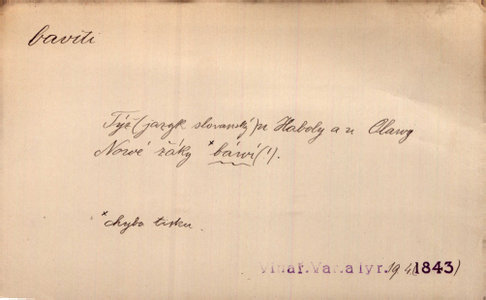 bavíti
Týž (jazyk slovanský) u Haboly a u Olawy
Nowé žáky ˣbáwí(!).
ˣchyba tisku.
Vinař. Var. a lyr. 19 (1843)